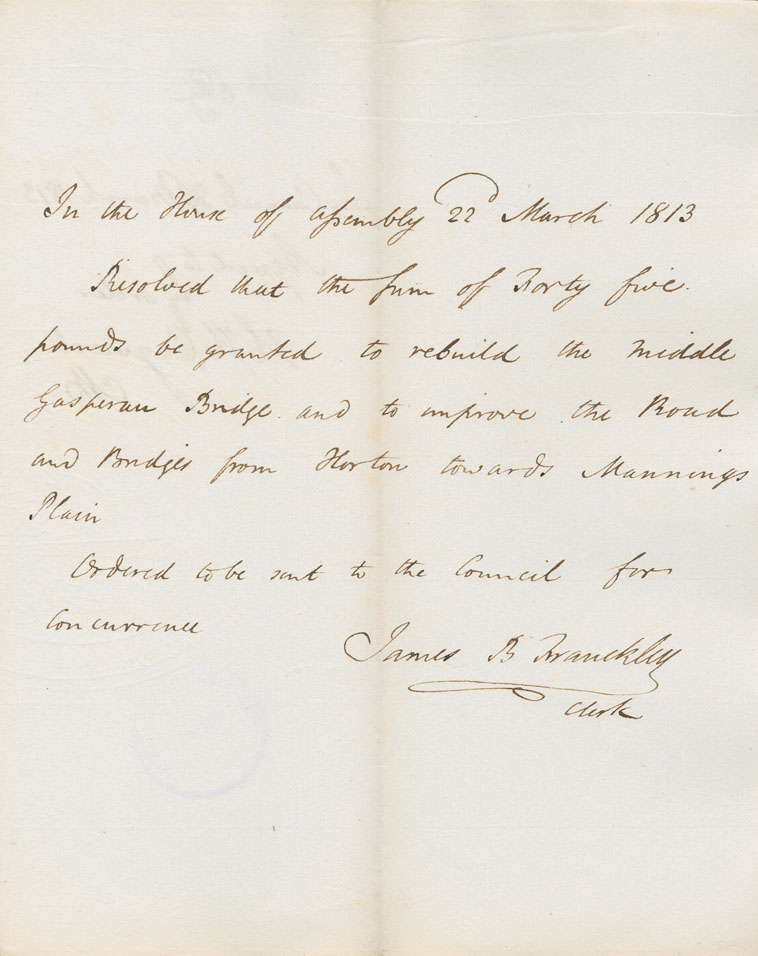 In the House of Assembly 22d March 1813
Resolved that the sum of Forty five
pounds be granted to rebuild the middle
Gasperau Bridge and to improve the Road
and Bridges from Horton towards Mannings
Plain
Ordered to be sent to the Council for
Concurrence
James B Franckley
Clerk